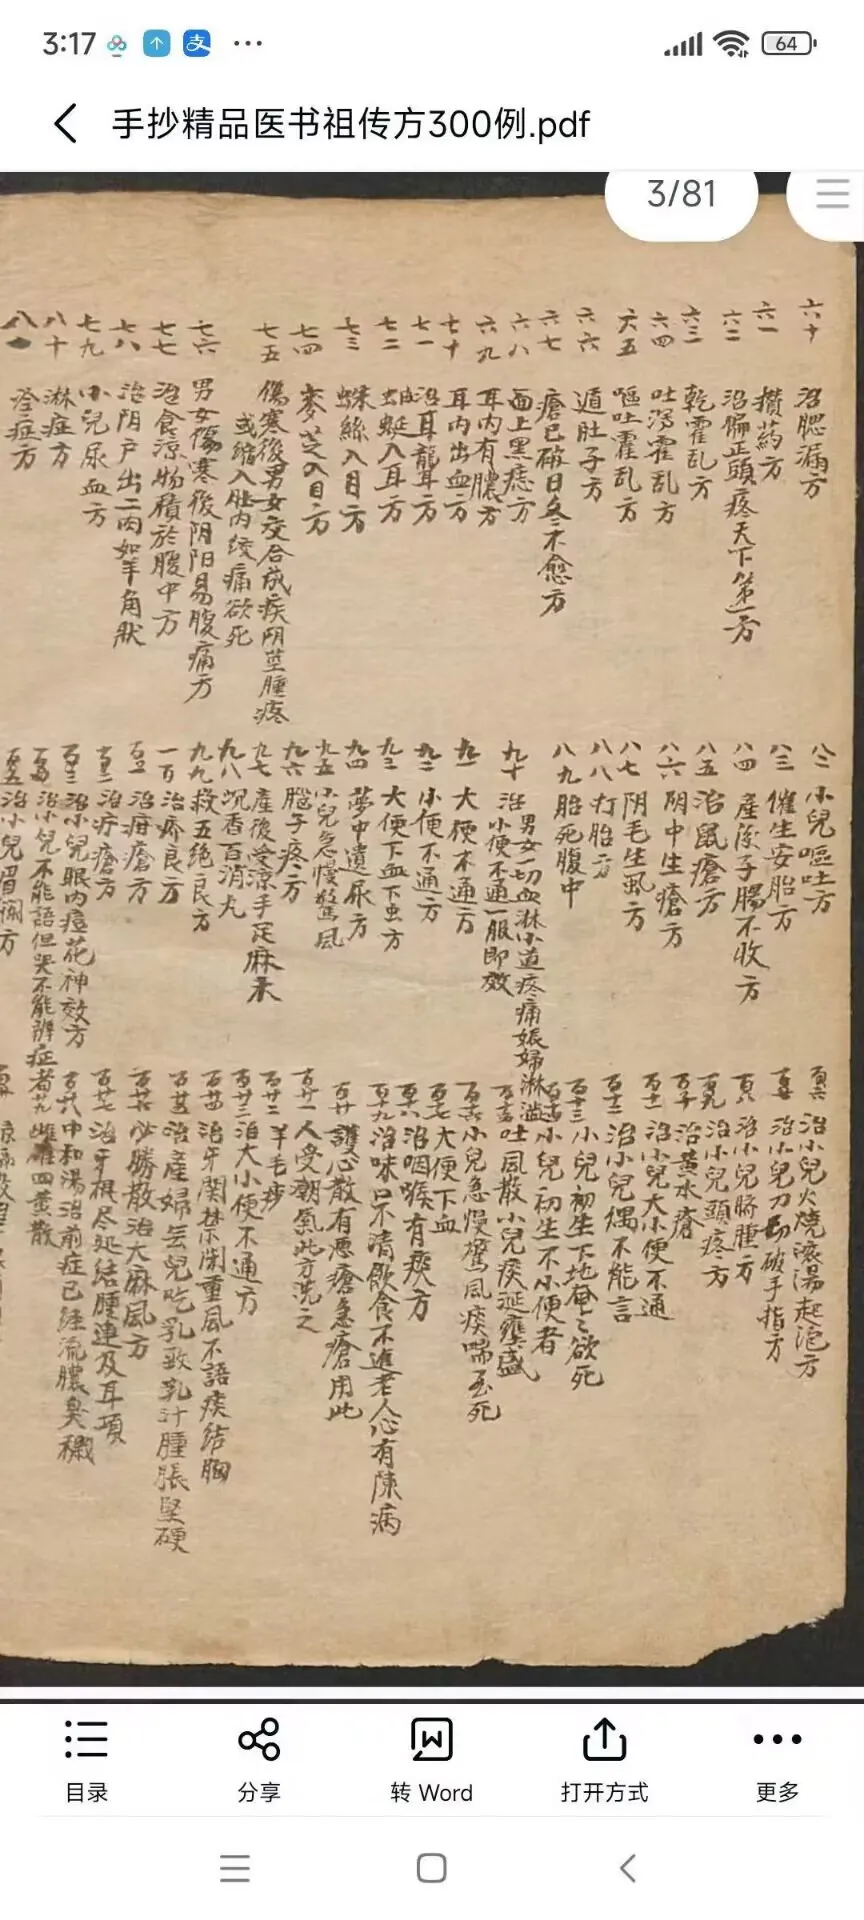 3:17
64
手抄精品医书祖传方300例.pdf
3/81
六十 治腮漏方
六一 攢药方
六二 治偏正頭疼天下第一方
六三 乾霍乱方
六四 吐瀉霍乱方
六五 嘔吐霍乱方
六六 遁肚子方
六七 瘡已破日久不愈方
六八 面上黑痣方
六九 耳内有膿方
七十 耳内出血方
七一 治耳聾耳方
七二 蚰蜒入耳方
七三 蛛絲入目方
七四 麥芒入目方
七五 傷寒後男女交合成疾阴莖腫疼
或縮入肚内绞痛欲死
七六 男女傷寒後阴阳易腹痛方
七七 治食涼物積於腹中方
七八 治阴户出二肉如羊角狀
七九 小兒尿血方
八十 淋症方
八一 淫症方
八二 小兒嘔吐方
八三 催生安胎方
八四 產後子腸不收方
八五 治鼠瘡方
八六 阴中生瘡方
八七 阴毛生虱方
八八 打胎方
八九 胎死腹中
九十 治男女一切血淋小道疼痛娠婦淋溢
小便不通一服即效
九一 大便不通方
九二 小便不通方
九三 大便下血下虫方
九四 夢中遺尿方
九五 小兒急慢驚风
九六 腦子疼方
九七 產後受涼手足麻木
九八 沉香百消丸
九九 救五绝良方
一百 治疥良方
百一 治疳瘡方
百二 治疔瘡方
百三 治小兒眼内痘花神效方
百四 治小兒不能語但哭不能辨症者
百五 治小兒眉爛方
百六 治小兒火燒滚湯起泡方
百七 治小兒刀切破手指方
百八 治小兒臍腫方
百九 治小兒頭疼方
百十 治黄水瘡
百十一 治小兒大小便不通
百十二 治小兒偶不能言
百十三 小兒初生下地奄奄欲死
百十四 小兒初生不小便者
百十五 吐风散小兒痰涎壅盛
百十六 小兒急慢驚风痰喘至死
百十七 大便下血
百十八 治咽喉有瘿方
百十九 治味口不清飲食不進老人心有陳病
百廿 護心散有恶瘡急瘡用此
百廿一 人受潮氣此方洗之
百廿二 羊毛痧
百廿三 治大小便不通方
百廿四 治牙関禁闭重风不語痰结胸
百廿五 治產婦無兒吃乳致乳汁腫脹堅硬
百廿六 必勝散治大麻风方
百廿七 治牙根尽处结腫連及耳項
百廿八 中和湯治前症已经流膿臭穢
百廿九 雌雄四黄散
目录
分享
转 Word
打开方式
更多